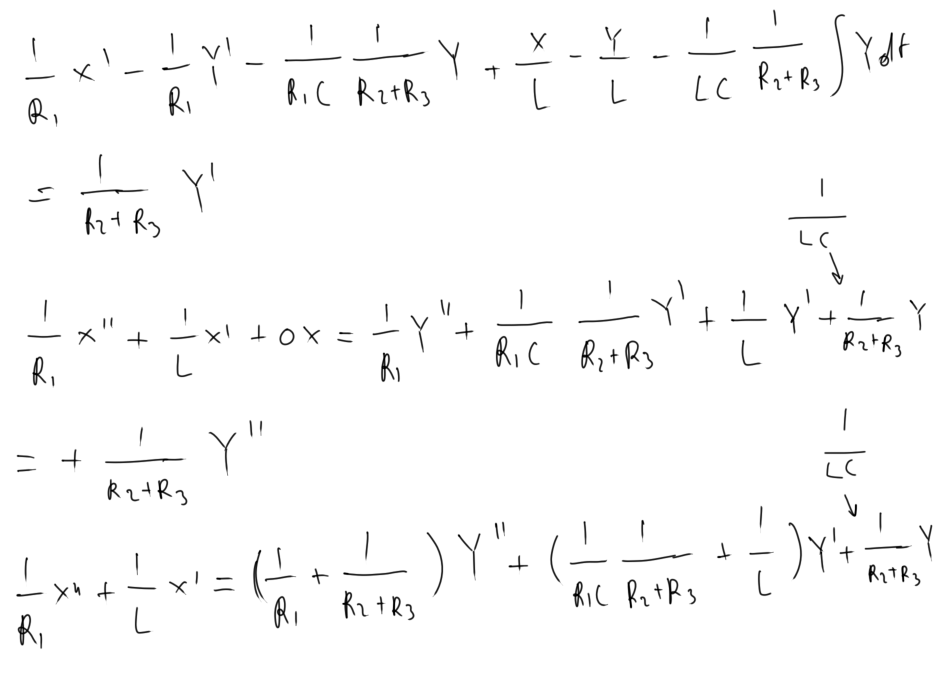 \frac{1}{R_1} x' - \frac{1}{R_1} Y' - \frac{1}{R_1 C} \frac{1}{R_2+R_3} Y + \frac{x}{L} - \frac{Y}{L} - \frac{1}{LC} \frac{1}{R_2+R_3} \int Y dt
= \frac{1}{R_2+R_3} Y'
\frac{1}{LC} ↓
\frac{1}{R_1} x'' + \frac{1}{L} x' + 0x = \frac{1}{R_1} Y'' + \frac{1}{R_1 C} \frac{1}{R_2+R_3} Y' + \frac{1}{L} Y' + \frac{1}{R_2+R_3} Y
= + \frac{1}{R_2+R_3} Y''
\frac{1}{LC} ↓
\frac{1}{R_1} x'' + \frac{1}{L} x' = (\frac{1}{R_1} + \frac{1}{R_2+R_3}) Y'' + (\frac{1}{R_1 C} \frac{1}{R_2+R_3} + \frac{1}{L}) Y' + \frac{1}{R_2+R_3} Y